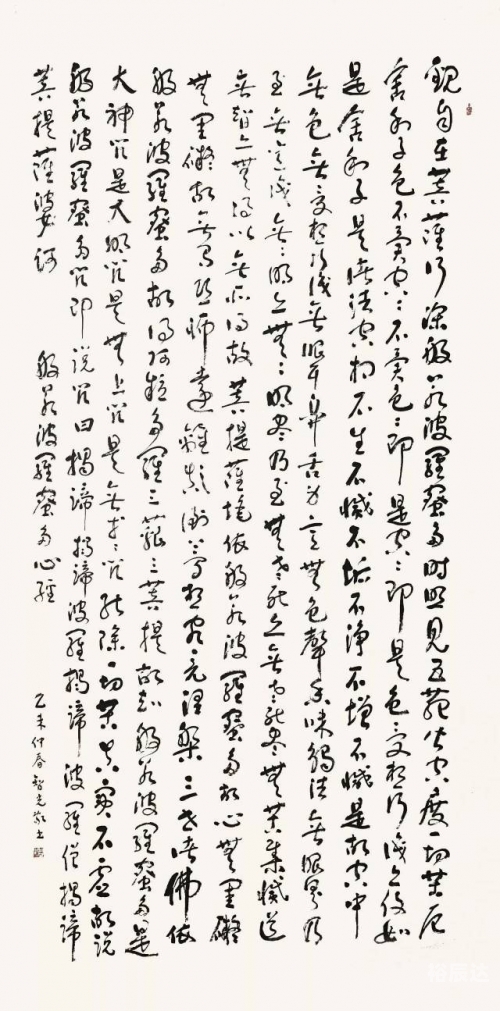 觀自在菩薩行深般若波羅蜜多時照見五蘊皆空度一切苦厄
舍利子色不異空〻不異色〻即是空〻即是色受想行識亦復如
是舍利子是諸法空相不生不滅不垢不淨不增不減是故空中
無色無受想行識無眼耳鼻舌身意無色聲香味觸法無眼界乃
至無意識無〻明亦無〻明盡乃至無老死亦無老死盡無苦集滅道
無智亦無得以無所得故菩提薩埵依般若波羅蜜多故心無罣礙
無罣礙故無有恐怖遠離顛倒夢想究竟涅槃三世諸佛依
般若波羅蜜多故得阿耨多羅三藐三菩提故知般若波羅蜜多是
大神咒是大明咒是無上咒是無等〻咒能除一切苦真實不虛故說
般若波羅蜜多咒即說咒曰揭諦揭諦波羅揭諦波羅僧揭諦
菩提薩婆訶 般若波羅蜜多心經
乙未仲春智光敬書